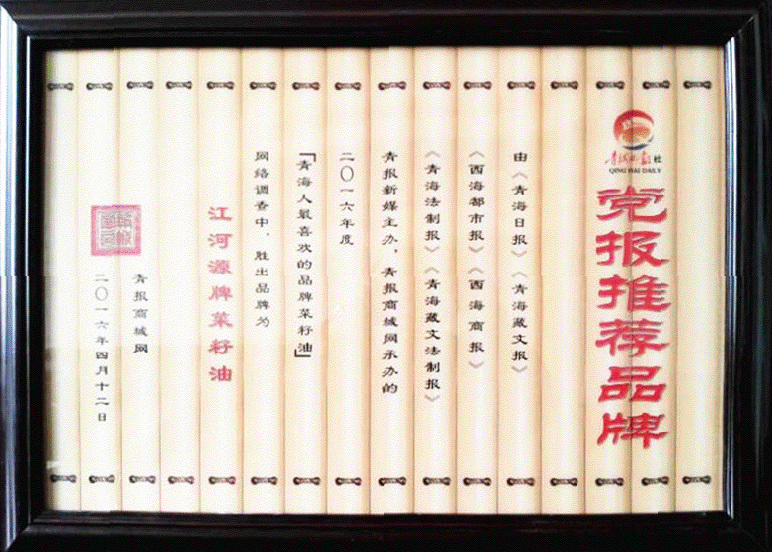 青海日报社
QINGHAI DAILY
党报推荐品牌
由《青海日报》《青海藏文报》
《西海都市报》《西海商报》
《青海法制报》《青海藏文法制报》
青报新媒主办，青报商城网承办的
二〇一六年度
「青海人最喜欢的品牌菜籽油」
网络调查中，胜出品牌为
江河源牌菜籽油
青报商城网
二〇一六年四月十二日